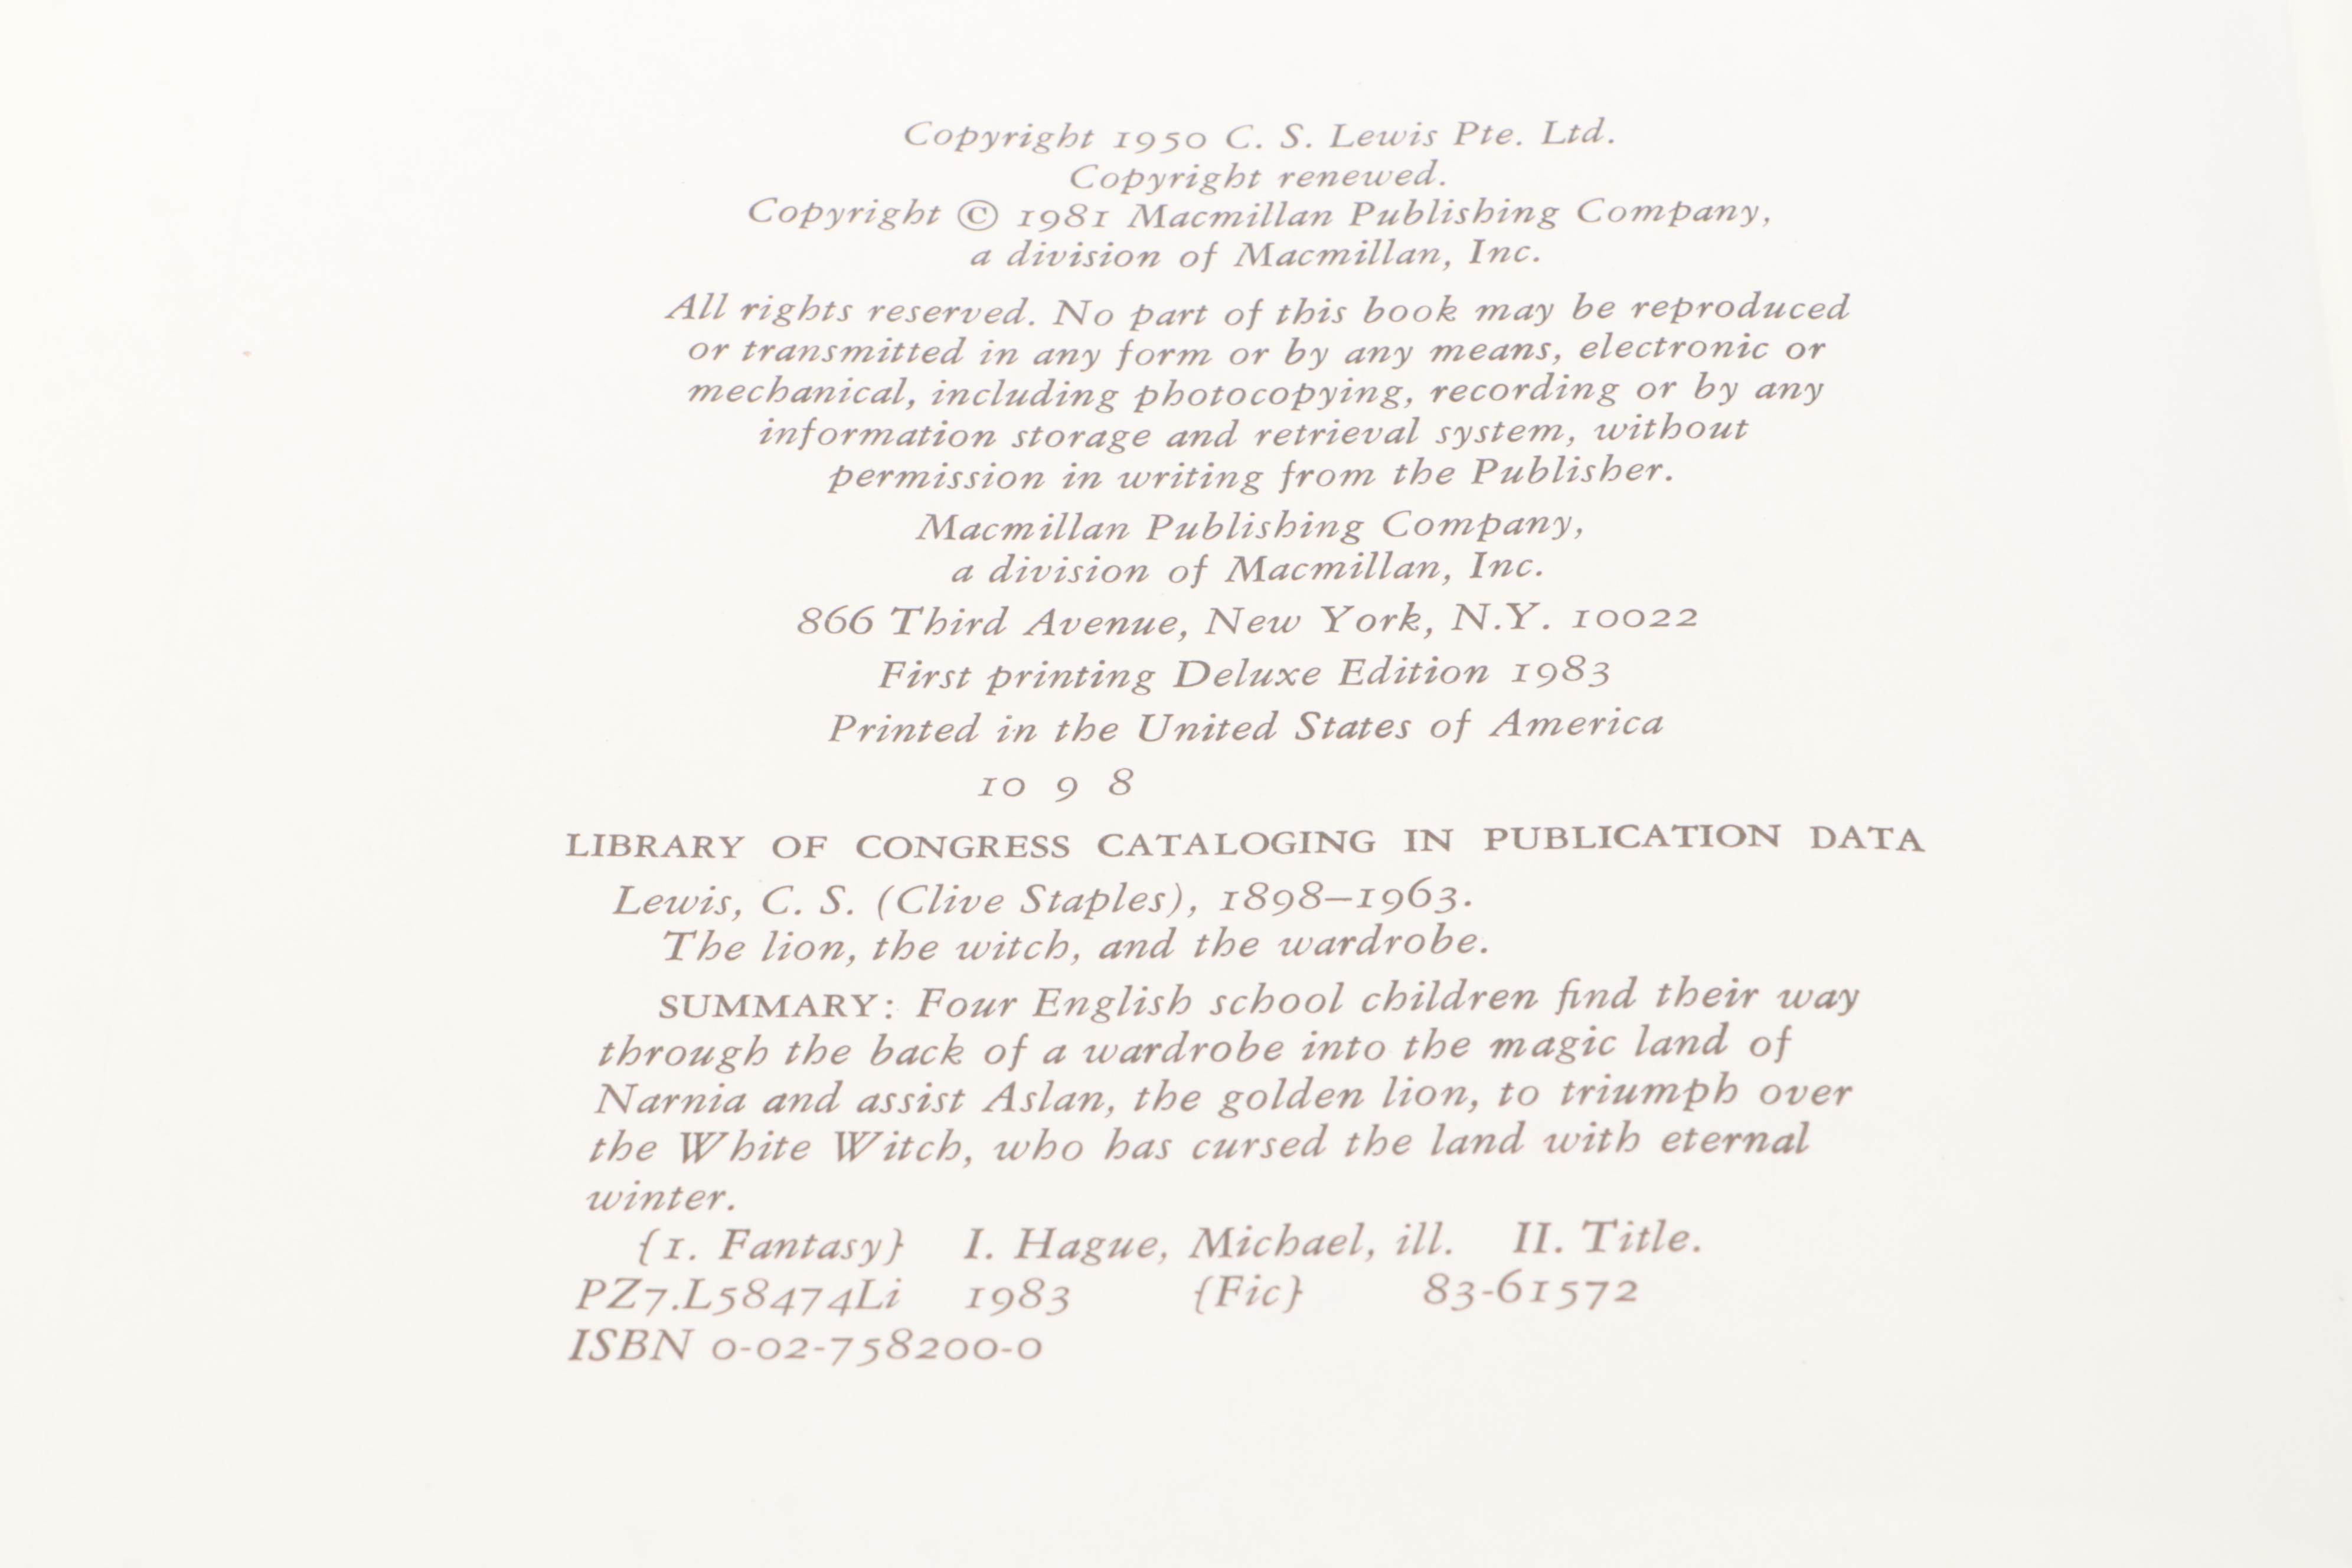 Copyright 1950 C. S. Lewis Pte. Ltd.
Copyright renewed.
Copyright © 1981 Macmillan Publishing Company,
a division of Macmillan, Inc.
All rights reserved. No part of this book may be reproduced
or transmitted in any form or by any means, electronic or
mechanical, including photocopying, recording or by any
information storage and retrieval system, without
permission in writing from the Publisher.
Macmillan Publishing Company,
a division of Macmillan, Inc.
866 Third Avenue, New York, N.Y. 10022
First printing Deluxe Edition 1983
Printed in the United States of America
10 9 8
LIBRARY OF CONGRESS CATALOGING IN PUBLICATION DATA
Lewis, C. S. (Clive Staples), 1898–1963.
The lion, the witch, and the wardrobe.
SUMMARY: Four English school children find their way
through the back of a wardrobe into the magic land of
Narnia and assist Aslan, the golden lion, to triumph over
the White Witch, who has cursed the land with eternal
winter.
{1. Fantasy} I. Hague, Michael, ill. II. Title.
PZ7.L58474Li 1983 {Fic} 83-61572
ISBN 0-02-758200-0